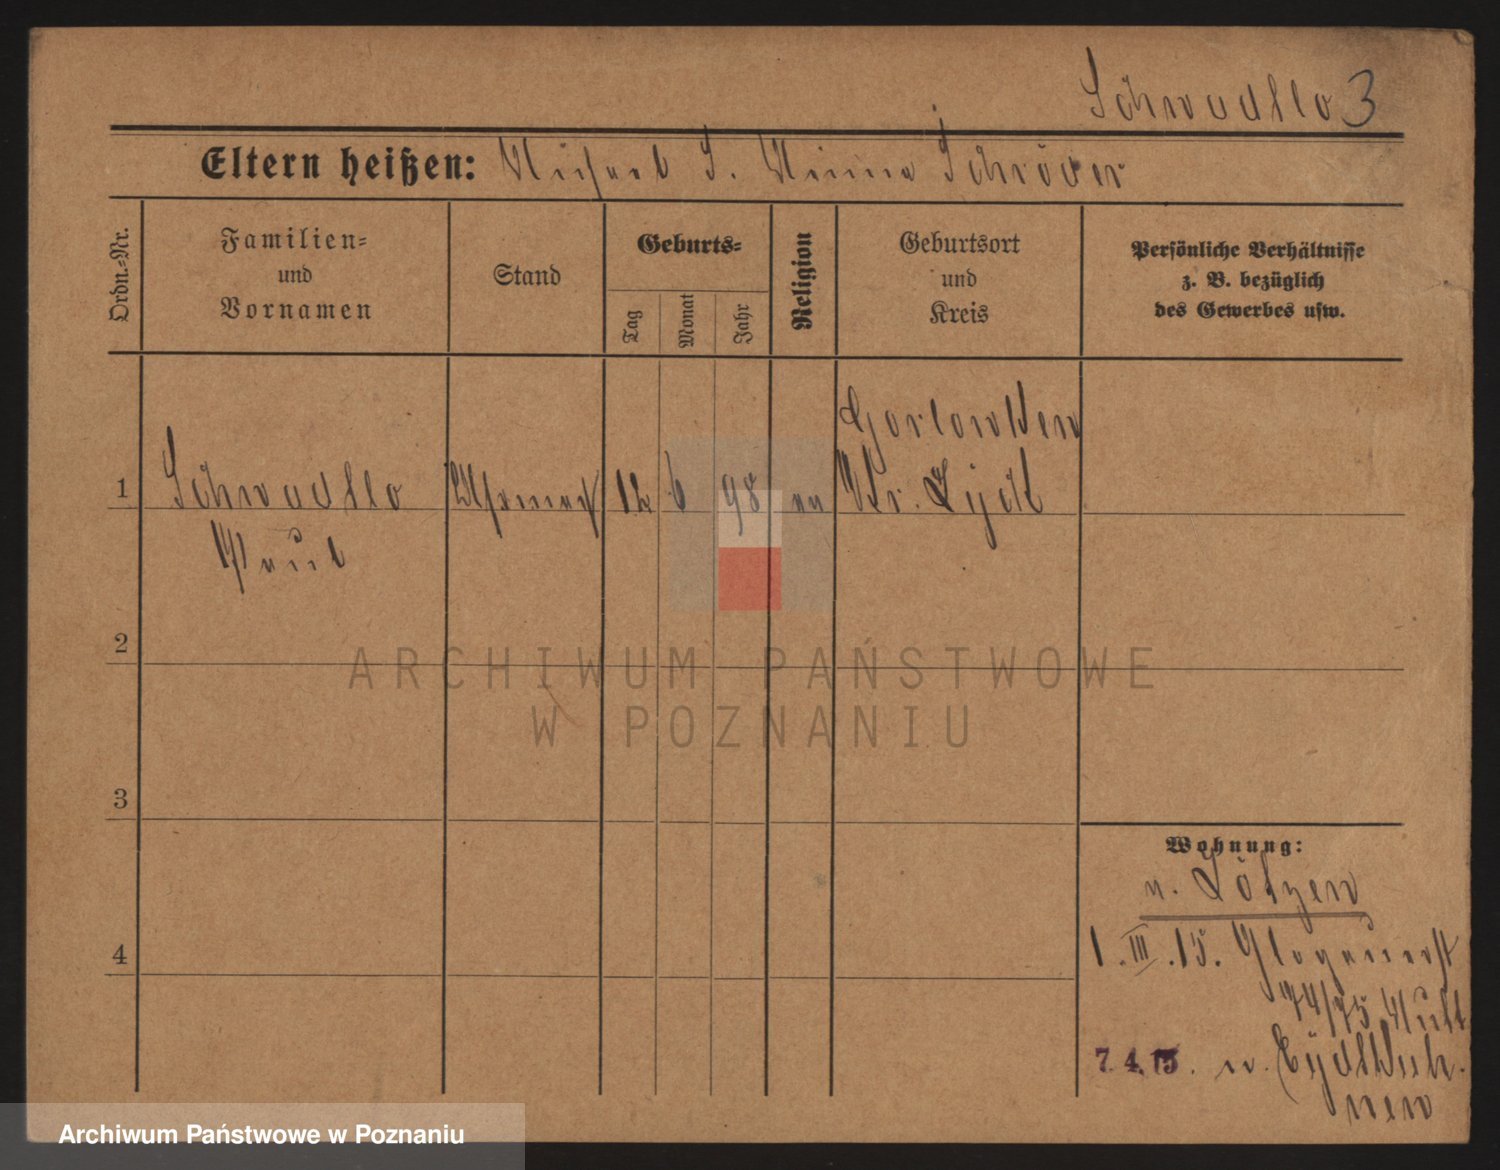 Schwadllo 3
Eltern heißen: Michael S. Minna Schröder
Ordn.-Nr.
Familien-
und
Vornamen
Stand
Geburts-
Tag
Monat
Jahr
Religion
Geburtsort
und
Kreis
Persönliche Verhältnisse
z. B. bezüglich
des Gewerbes usw.
Gorlowken
1 Schwadllo 12 6 98 Kr. Lyck
Paul
2
ARCHIWUM PAŃSTWOWE
W POZNANIU
3
Wohnung:
n. Lötzen
4
1. III. 15. Glogauerst
74/75
7. 4. 15. n. Eydtkuh-
nen
Archiwum Państwowe w Poznaniu